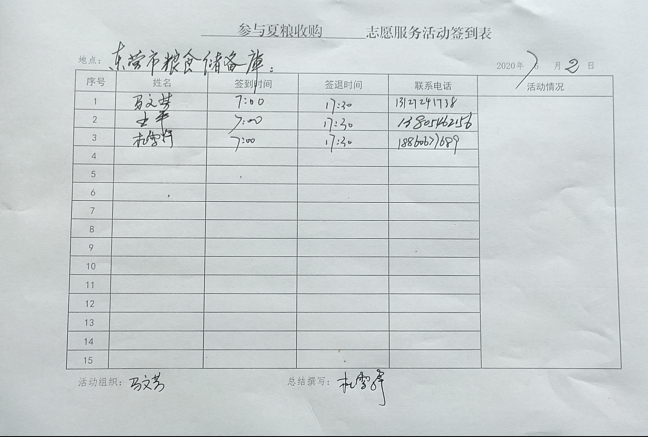 参与夏粮收购 志愿服务活动签到表
地点：东营市粮食储备库： 2020年7月2日
序号 姓名 签到时间 签退时间 联系电话 活动情况
1 马文芳 7:00 17:30
2 王平 7:00 17:30 13805462156
3 7:00 17:30
4
5
6
7
8
9
10
11
12
13
14
15
活动组织：马文芳 总结撰写：